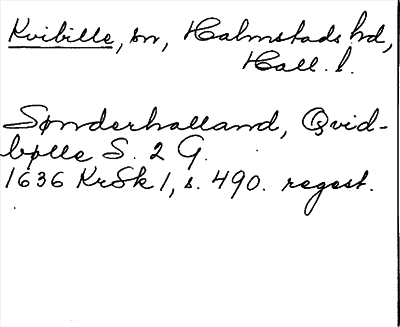 Kvibille, sn, Halmstads hd,
Hall. l.
Sønderhalland, Qvid-
bølle S. 2 G.
1636 KrSk 1, s. 490. regest.